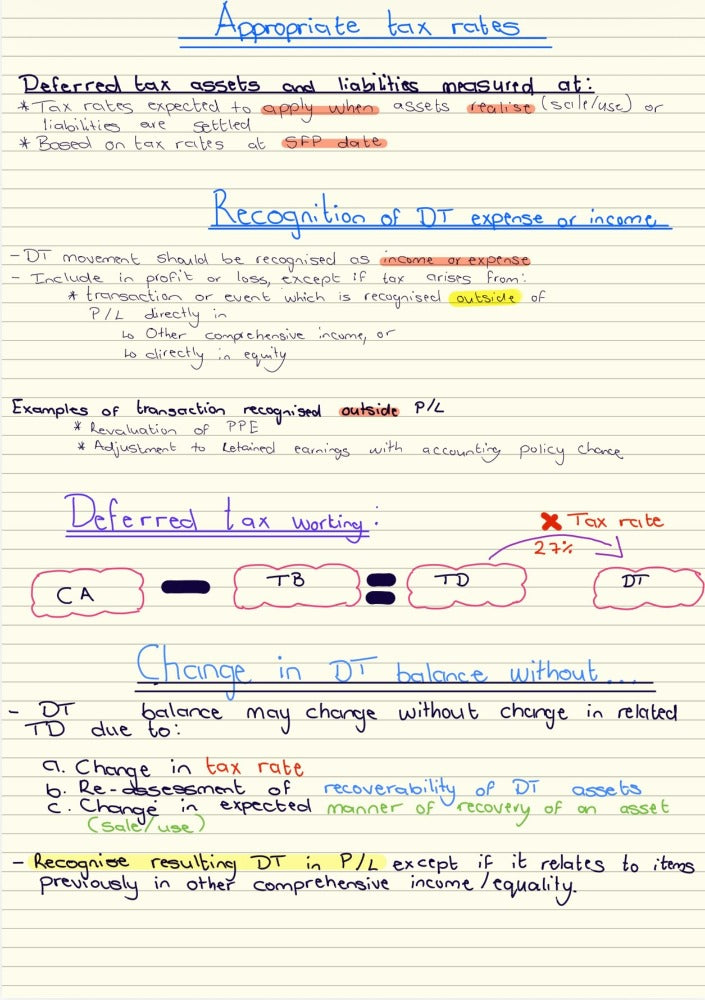 Appropriate tax rates
Deferred tax assets and liabilities measured at:
* Tax rates expected to apply when assets realise (sale/use) or
liabilities are settled
* Based on tax rates at SFP date
Recognition of DT expense or income
- DT movement should be recognised as income or expense
- Include in profit or loss, except if tax arises from:
* transaction or event which is recognised outside of
P/L directly in
↳ Other comprehensive income, or
↳ directly in equity
Examples of transaction recognised outside P/L
* Revaluation of PPE
* Adjustment to retained earnings with accounting policy change
Deferred tax working:
✗ Tax rate
27%
CA - TB = TD DT
Change in DT balance without...
- DT balance may change without change in related
TD due to:
a. Change in tax rate
b. Re-assessment of recoverability of DT assets
c. Change in expected manner of recovery of an asset
(sale/use)
- Recognise resulting DT in P/L except if it relates to items
previously in other comprehensive income/equality.